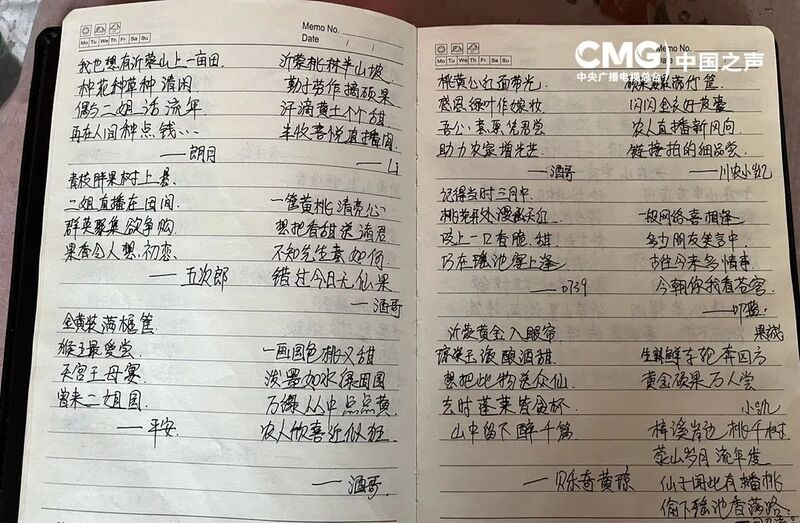 Memo No.
Mo Tu We Th Fr Sa Su
Date
我也想有沂蒙山上一亩田
种花种草种清闲
偶与二姐话流年
再在人间种点钱…
——朗月
沂蒙桃林半山坡
勤于劳作摘硕果
汗滴黄土个个甜
丰收喜悦直播间
青枝胖果树上悬
二姐直播在田间
群英聚集欲争购
果香令人想初恋
——五次郎
一筐黄桃清亮心
想把香甜送诸君
不知先生意如何
错过今日无仙果
——酒哥
金黄装满框筐
猴王最爱尝
天宫王母宴
曾来二姐园
——平安
一画国色桃又甜
泼墨如水绿田园
万绿丛中点点黄
农人欣喜近似狂
——酒哥
CMG 中国之声
中央广播电视总台
Memo No.
Mo Tu We Th Fr Sa Su
感恩绿叶作嫁妆
助力农家增光芒
——酒哥
闪闪金衣好披囊
农人直播新风向
链接拍的细品尝
——川农小凯
记得当时三月中
咬上一口香脆甜
乃在瑶池宴上逢
——0739
一根网络喜相逢
多少朋友笑言中
古往今来多情事
今朝你我看苍穹
沂蒙黄金入眼帘
琼浆玉液酿酒甜
想把此物送众仙
去时蓬莱皆贪杯
山中留下醉千篇
——贝乐奇黄琼
果绒
生鲜车轮奔四方
黄金硕果万人尝
小凯
梓溪岸边桃千树
蒙山岁月流年度
仙子闻此有播桃
偷下瑶池香满路